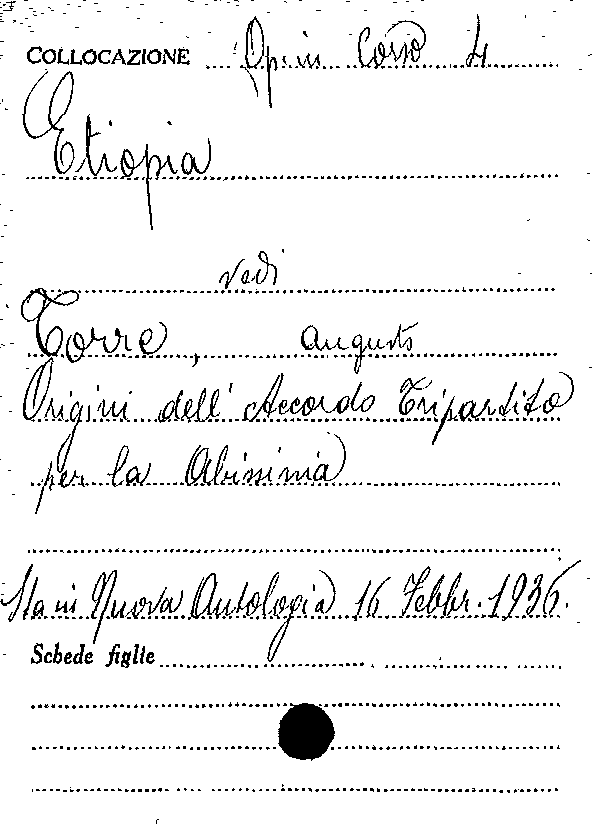 COLLOCAZIONE Opin Corso 4
Etiopia
vedi
Torre, Augusto
Origini dell'Accordo Tripartito
per la Abissinia
Sta in Nuova Antologia 16 Febbr. 1936.
Schede figlie